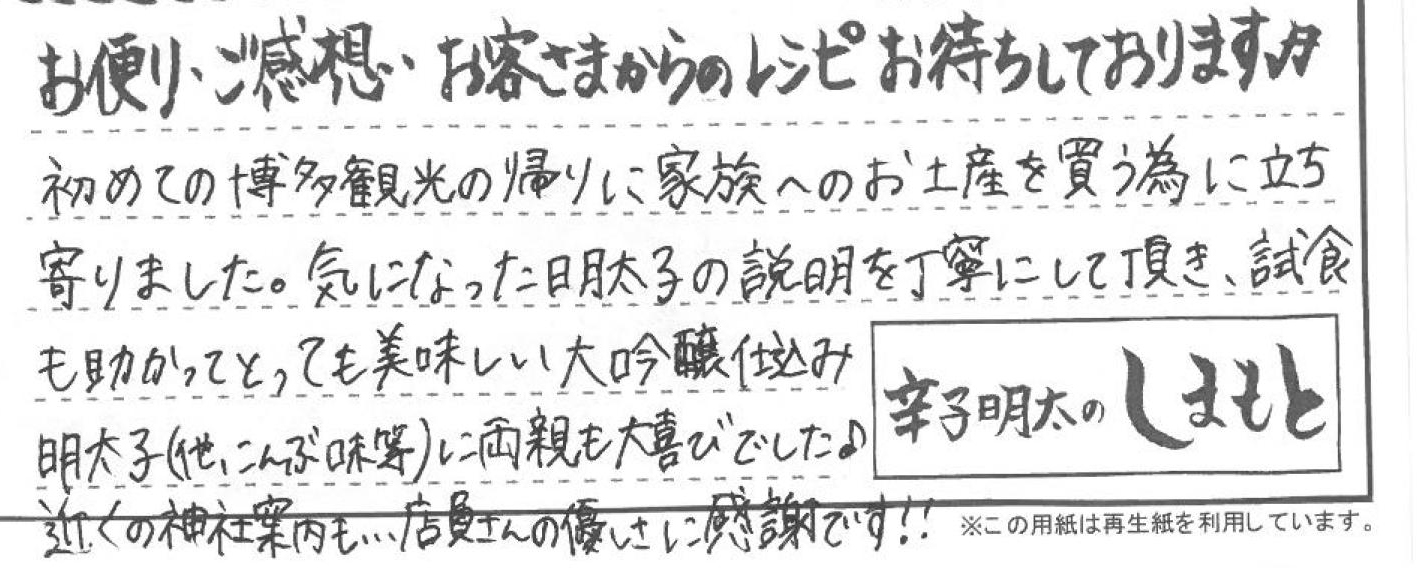 お便り、ご感想、お客さまからのレシピお待ちしております♪
初めての博多観光の帰りに家族へのお土産を買う為に立ち
寄りました。気になった明太子の説明を丁寧にして頂き、試食
も助かってとっても美味しい大吟醸仕込み
明太子(他、こんぶ味等)に両親も大喜びでした♪
近くの神社案内も...店員さんの優しさに感謝です!!
辛子明太のしまもと
※この用紙は再生紙を利用しています。